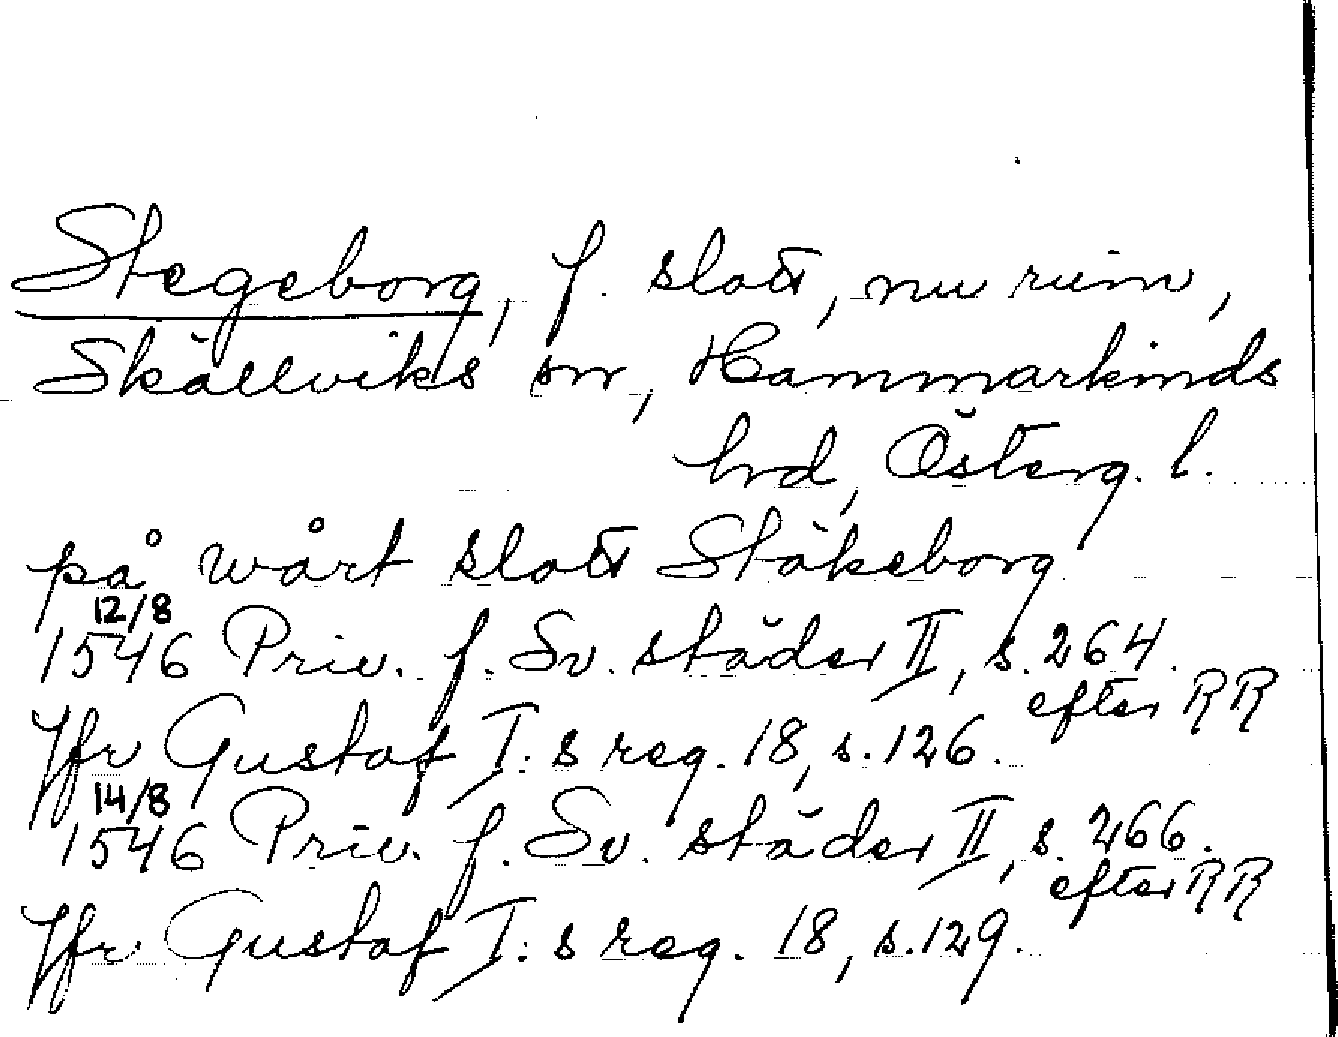 Stegeborg, f. slott, nu ruin,
Skällviks sn, Hammarkinds
hrd, Österg. l.
på wårt slott Stäkeborg
12/8
1546 Priv. f. Sv. städer II, s. 264.
efter RR
Jfr Gustaf I:s reg. 18, s. 126.
14/8
1546 Priv. f. Sv. städer II, s. 266.
efter RR
Jfr Gustaf I:s reg. 18, s. 129.